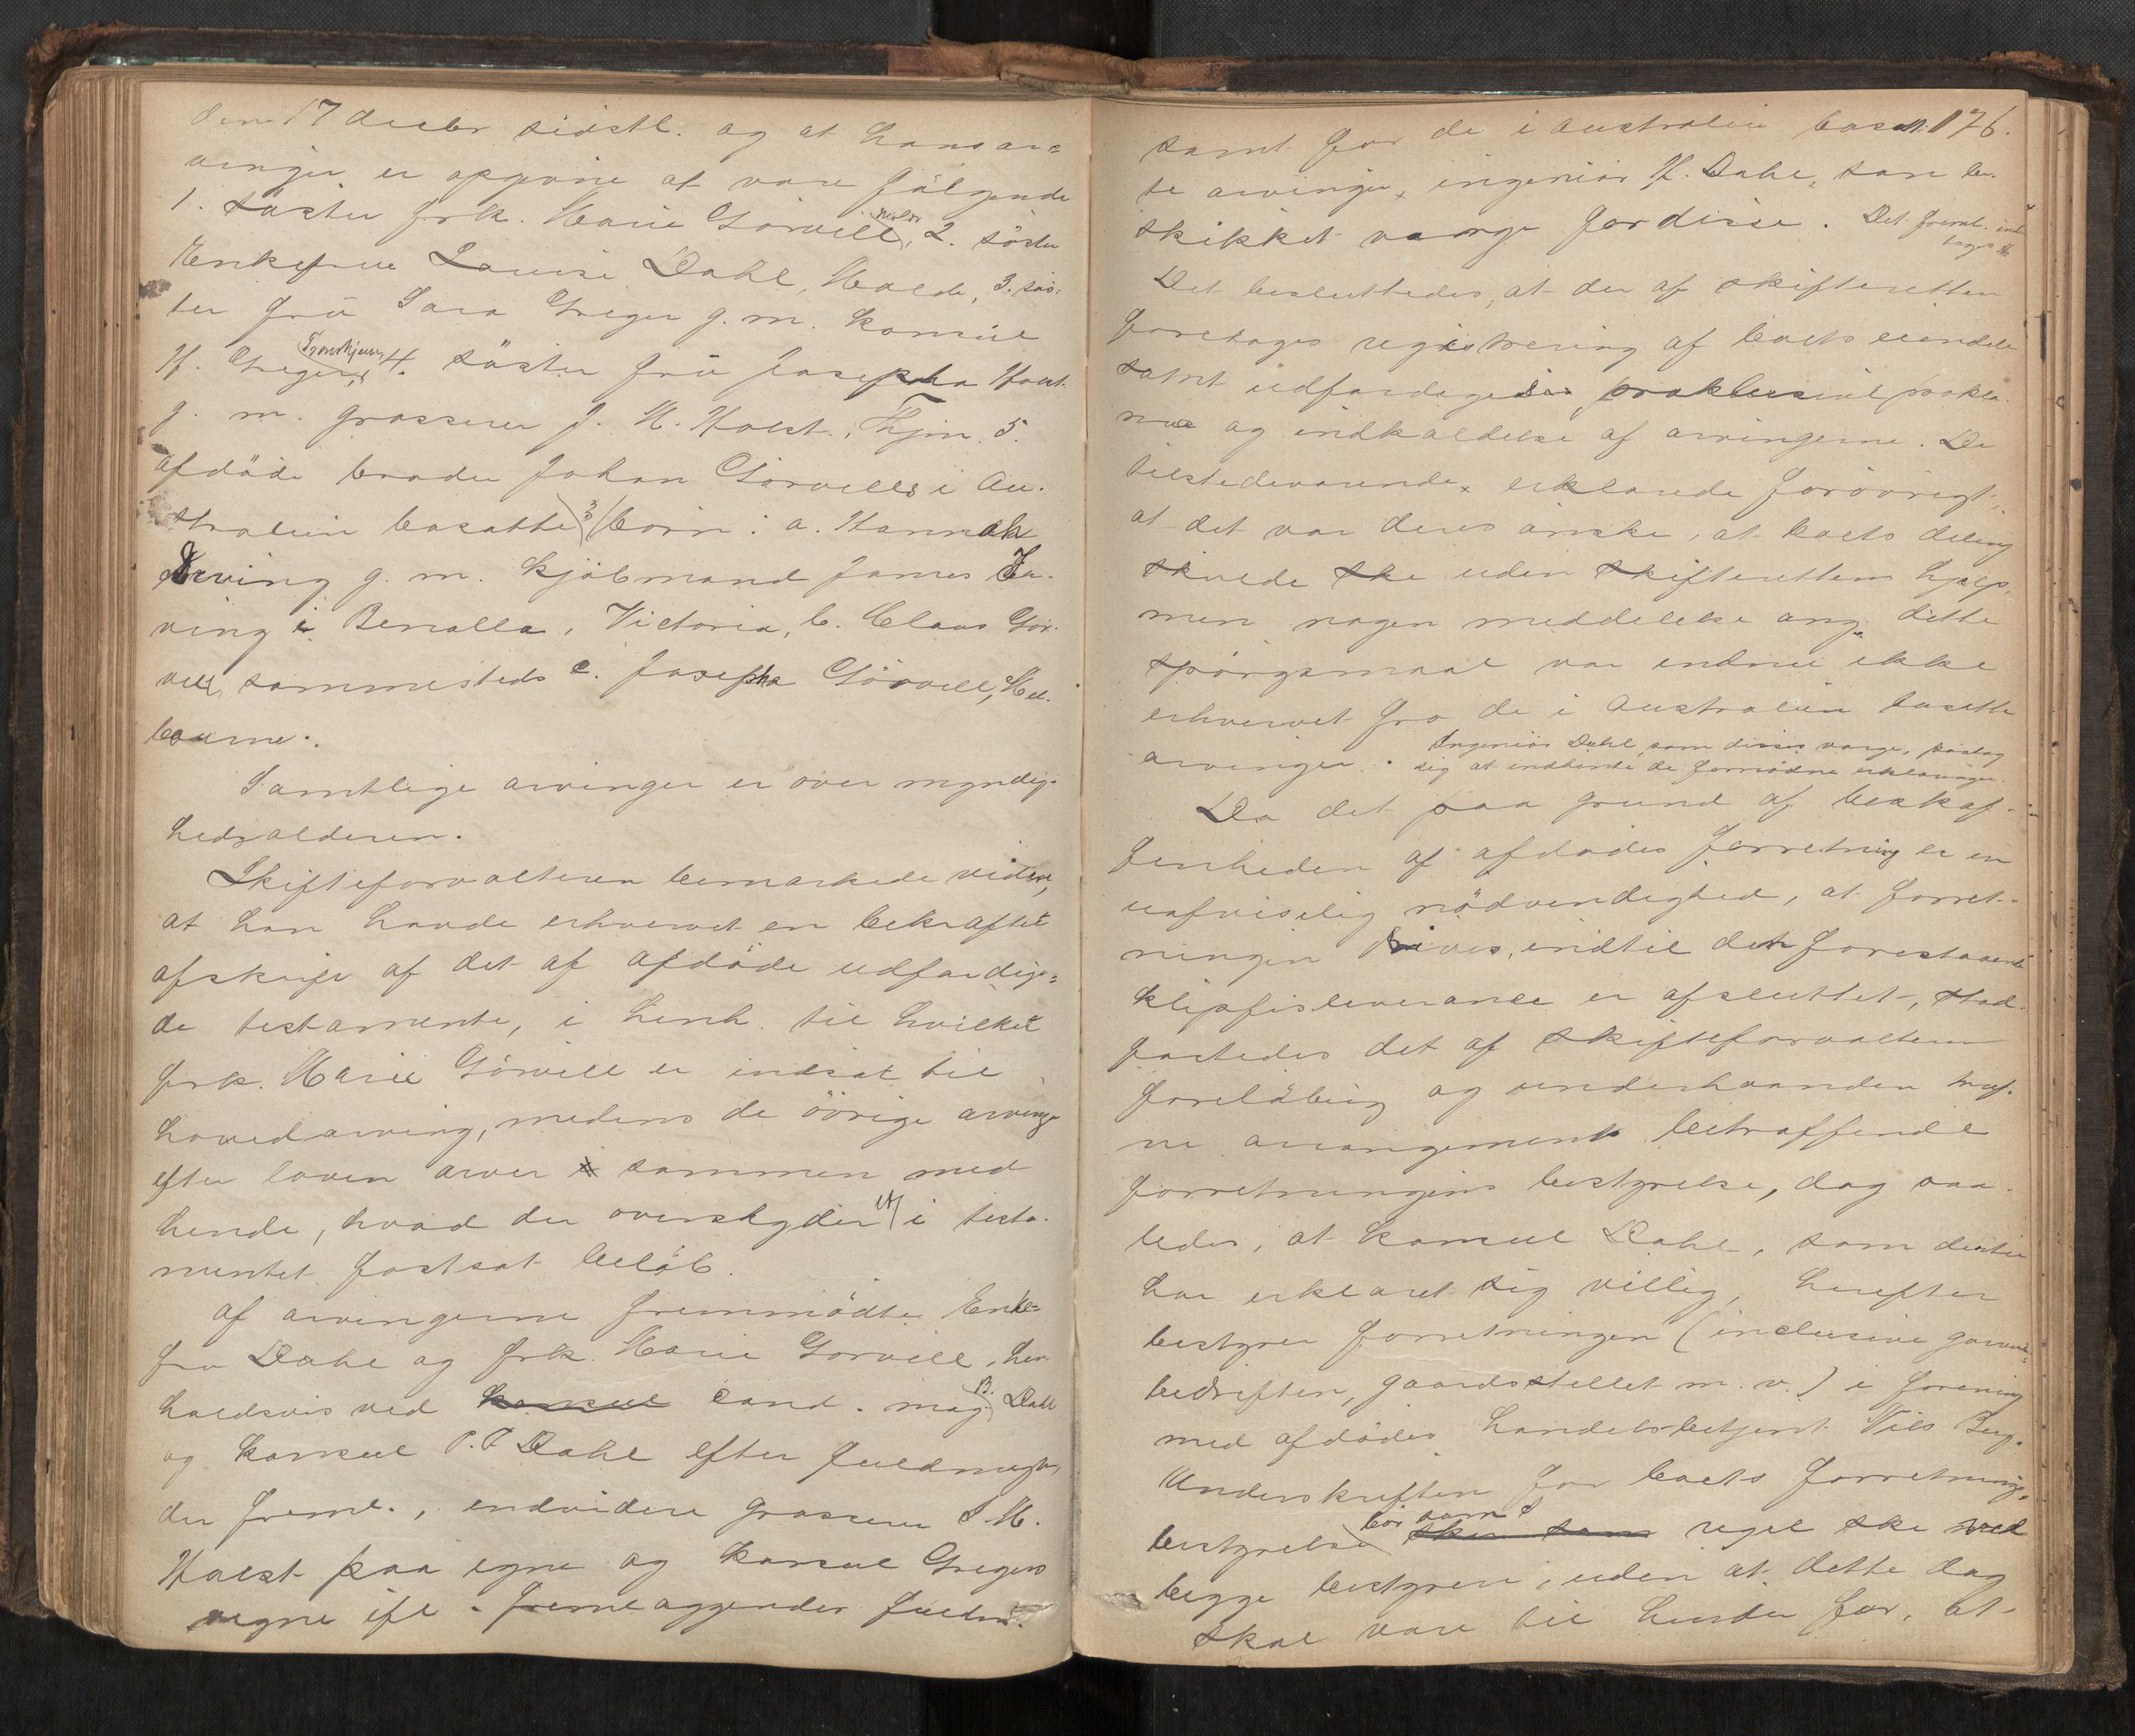 den 17 decbr sidstl. og at hans ar=
vinger er opgivne at være følgende
1. söster frk. Marie Görvell, Molde, 2. söster
Enkefrue Louise Dahl, Molde, 3. sös-
ter frü Sara Greger g. m. konsül
H. Greger, Trondhjem, 4. söster frü Josepha Holst
g. m. grosserer J. M. Holst, Thjm, 5.
afdöde broder Johan Görvells i Au-
stralien bosatte 3 börn: a. Hannah
Irving g. m. kjöbmand James Ir-
ving i Benalla, Victoria, b. Claus Gör-
vell, sammesteds c. Josepha Görvell, Mel-
bourne.
Samtlige arvinger er over myndig-
hedsalderen.
Skifteforvalteren bemærkede videre,
at han havde erhvervet en bekræftet
afskrift af det af afdöde udfærdige=
de testamente, i henh. til hvilket
frk. Marie Görvell er indsat til
hovedarving, medens de övrige arvinger
efter loven arver sammen med
hende, hvad der overskyder et i testa-
mentet fastsat belöb.
af arvingerne fremmödte Enke=
fru Dahl og frk. Marie Görvell, hen-
holdsvis ved konsul cand. mag. B. Dahl
og konsul P. P. Dahl efter fuldmagter,
der freml., endvidere grosserer J. M.
Holst paa egne og konsul Gregers
vegne ifl. fremlæggendes fuldm.
176.
samt for de i Australien bosat-
te arvinger, ingeniör H. Dahl, som be-
skikket værge for disse. Det freml. ind-
tages #
Det besluttedes, at der af skifteretten
foretages registrering af boets eiendele
samt udfærdiges præklusivt prokla-
ma og indkaldelse af arvingerne. De
tilstedeværende erklærede forövrigt,
at det var deres önske, at boets deling
skulde ske uden skifterettens hjælp,
men nogen meddelelse ang. dette
spörgsmaal var endnu ikke
erhvervet fra de i Australien bosatte
arvinger. Ingeniör Dahl, som disses værge, paatog
sig at indhente de fornødne erklæringer.
Da det paa grund af beskaf-
fenheden af afdödes forretning er en
uafviselig nödvendighed, at forret-
ningen drives, indtil den forestaaende
klipfisleverance er afsluttet, stad-
fæstedes det af skifteforvalteren
foreløbig og underhaanden truf-
ne arrangement betræffende
forretningens bestyrelse, dog saa-
ledes, at konsul Dahl, som dertil
har erklæret sig villig, herefter
bestyrer forretningen (inclusive garveri-
bedriften, gaardsstellet m. v.) i forening
med afdödes handelsbetjent Nils Berg.
Underskriften for boets forretnings-
bestyrelse bör som regel ske ved
begge bestyrere, uden at dette dog
skal være til hinder for, at